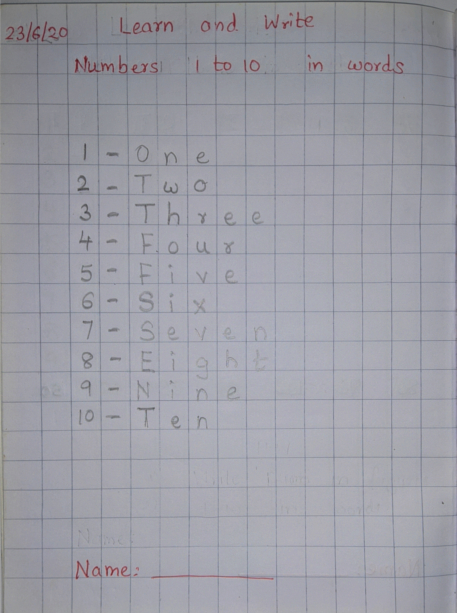 23/6/20
Learn and Write
Numbers 1 to 10 in words
1 - One
2 - Two
3 - Three
4 - Four
5 - Five
6 - Six
7 - Seven
8 - Eight
9 - Nine
10 - Ten
Name:
Name: ___________